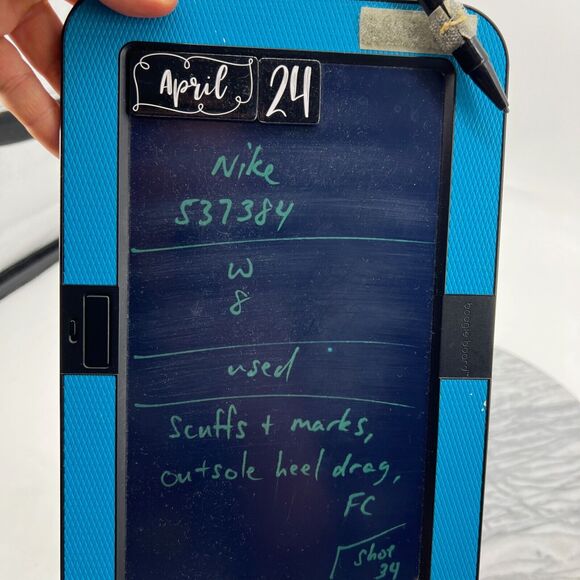 April 24
Nike
537384
W
8
used
Scuffs + marks,
outsole heel drag,
FC
shoe
34
boogie board